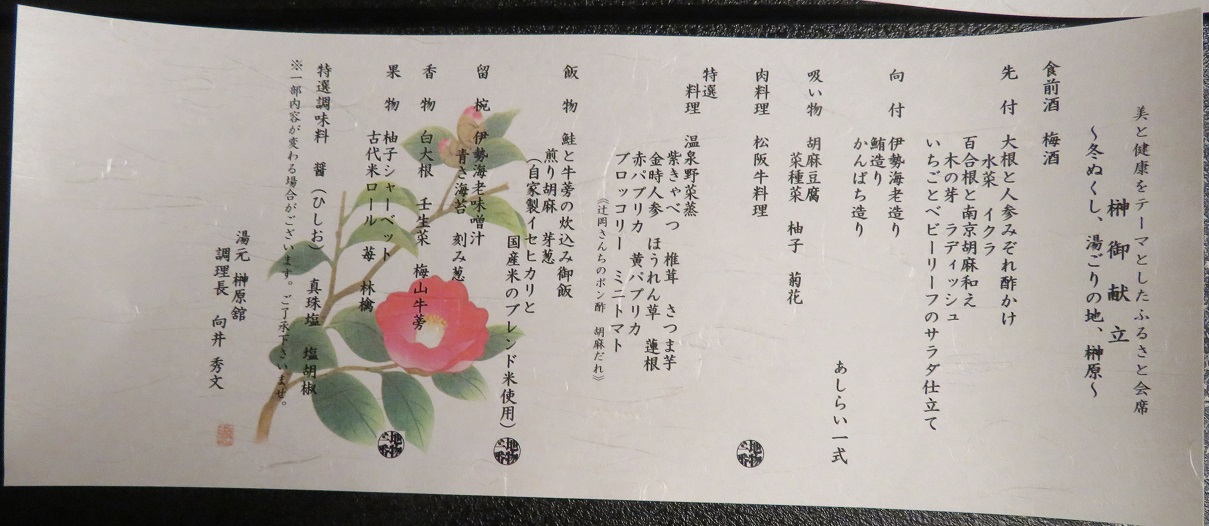 美と健康をテーマとしたふるさと会席
榊御献立
〜冬ぬくし、湯ごりの地、榊原〜
食前酒 梅酒
先付 大根と人参みぞれ酢かけ
水菜 イクラ
百合根と南京胡麻和え
木の芽 ラディッシュ
いちごとベビーリーフのサラダ仕立て
向付 伊勢海老造り
鮪造り
かんぱち造り
あしらい一式
吸い物 胡麻豆腐
菜種菜 柚子 菊花
肉料理 松阪牛料理
地物一番
特選
料理 温泉野菜蒸
紫きゃべつ 椎茸 さつま芋
金時人参 ほうれん草 蓮根
赤パプリカ 黄パプリカ
ブロッコリー ミニトマト
《辻岡さんちのポン酢 胡麻だれ》
飯物 鮭と牛蒡の炊込み御飯
煎り胡麻 芽葱
(自家製イセヒカリと
国産米のブレンド米使用)
地物一番
留椀 伊勢海老味噌汁
青さ海苔 刻み葱
香物 白大根 壬生菜 梅山牛蒡
果物 柚子シャーベット
古代米ロール 苺 林檎
地物一番
特選調味料 醤(ひしお) 真珠塩 塩胡椒
※一部内容が変わる場合がございます。ご了承下さいませ。
湯元 榊原舘
調理長 向井 秀文